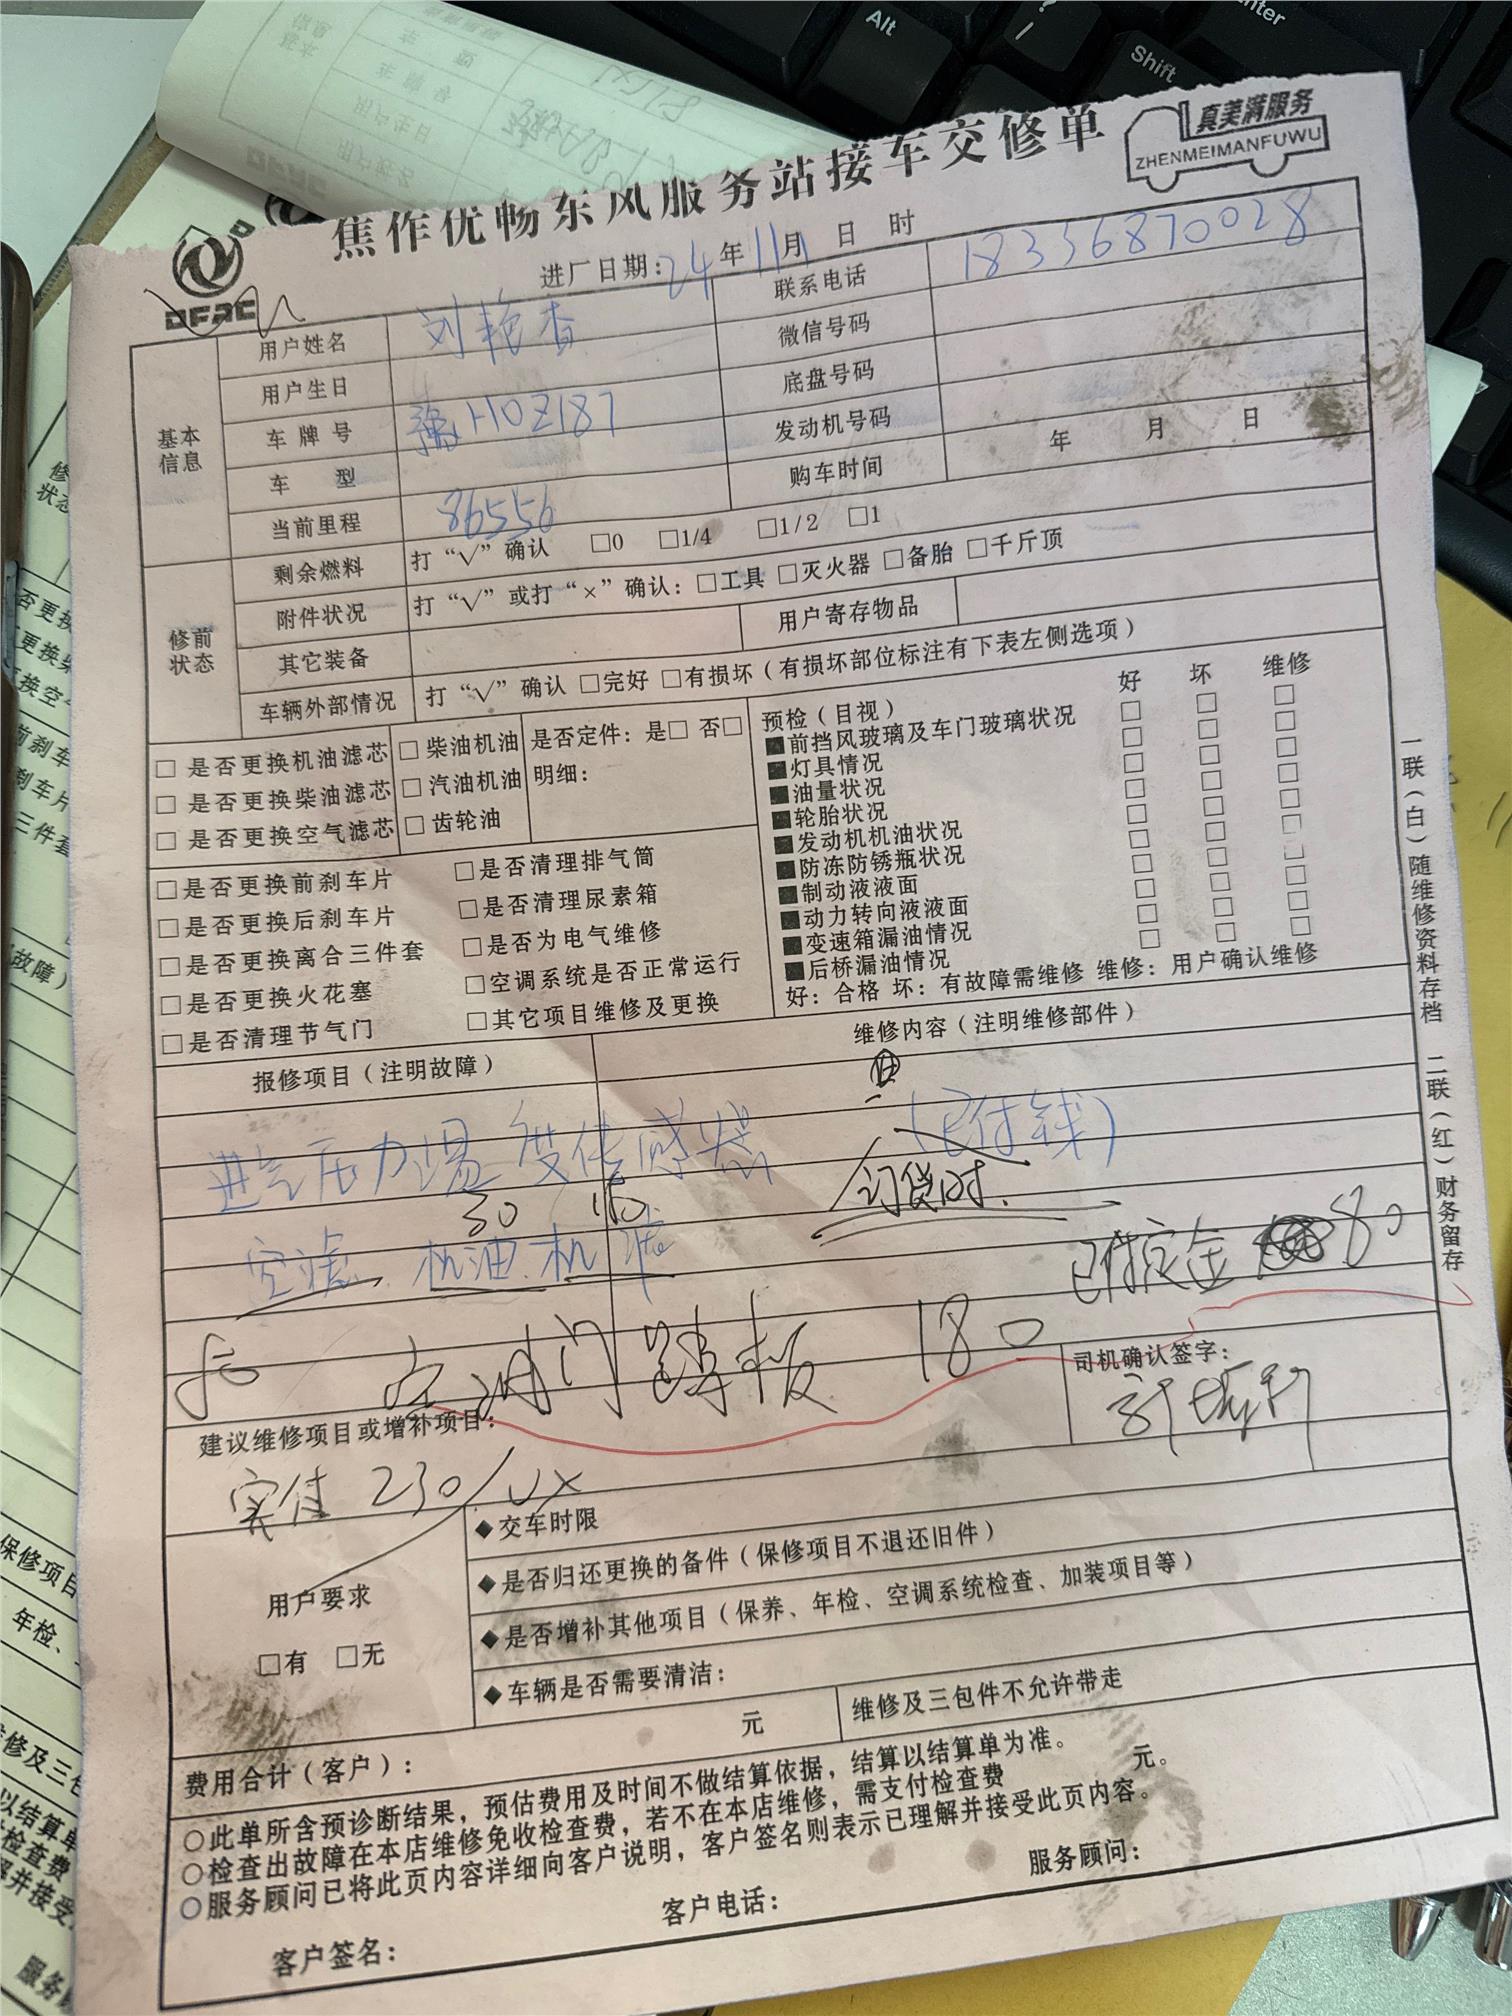 Alt
Enter
Shift
焦作优畅东风服务站接车交修单
真美满服务
ZHENMEIMANFUWU
DFAC
进厂日期：24年11月 日 时
基本信息
用户姓名 刘艳杏 联系电话 18336870028
用户生日 微信号码
车牌号 豫H0Z187 底盘号码
车 型 发动机号码
当前里程 86556 购车时间 年 月 日
修前状态
剩余燃料 打“√”确认 □0 □1/4 □1/2 □1
附件状况 打“√”或打“×”确认：□工具 □灭火器 □备胎 □千斤顶
其它装备 用户寄存物品
车辆外部情况 打“√”确认 □完好 □有损坏（有损坏部位标注有下表左侧选项）
□ 是否更换机油滤芯
□ 是否更换柴油滤芯
□ 是否更换空气滤芯
□ 柴油机油
□ 汽油机油
□ 齿轮油
是否定件：是□ 否□
明细：
□是否更换前刹车片
□是否更换后刹车片
□是否更换离合三件套
□是否更换火花塞
□是否清理节气门
□是否清理排气筒
□是否清理尿素箱
□是否为电气维修
□空调系统是否正常运行
□其它项目维修及更换
预检（目视） 好 坏 维修
■前挡风玻璃及车门玻璃状况 □ □ □
■灯具情况 □ □ □
■油量状况 □ □ □
■轮胎状况 □ □ □
■发动机机油状况 □ □ □
■防冻防锈瓶状况 □ □ □
■制动液液面 □ □ □
■动力转向液液面 □ □ □
■变速箱漏油情况 □ □ □
■后桥漏油情况 □ □ □
好：合格 坏：有故障需维修 维修：用户确认维修
报修项目（注明故障） 维修内容（注明维修部件）
进气压力温度传感器 （已付钱）
订货时.
50 180
空滤 机油 机滤
已付定金 80
后 油门踏板 180
司机确认签字：
建议维修项目或增补项目：
实付 230/VX
用户要求
□有 □无
◆交车时限
◆是否归还更换的备件（保修项目不退还旧件）
◆是否增补其他项目（保养、年检、空调系统检查、加装项目等）
◆车辆是否需要清洁：
费用合计（客户）： 元 维修及三包件不允许带走
○此单所含预诊断结果，预估费用及时间不做结算依据，结算以结算单为准。
○检查出故障在本店维修免收检查费，若不在本店维修，需支付检查费 元。
○服务顾问已将此页内容详细向客户说明，客户签名则表示已理解并接受此页内容。
客户签名： 客户电话： 服务顾问：
一联（白）随维修资料存档 二联（红）财务留存